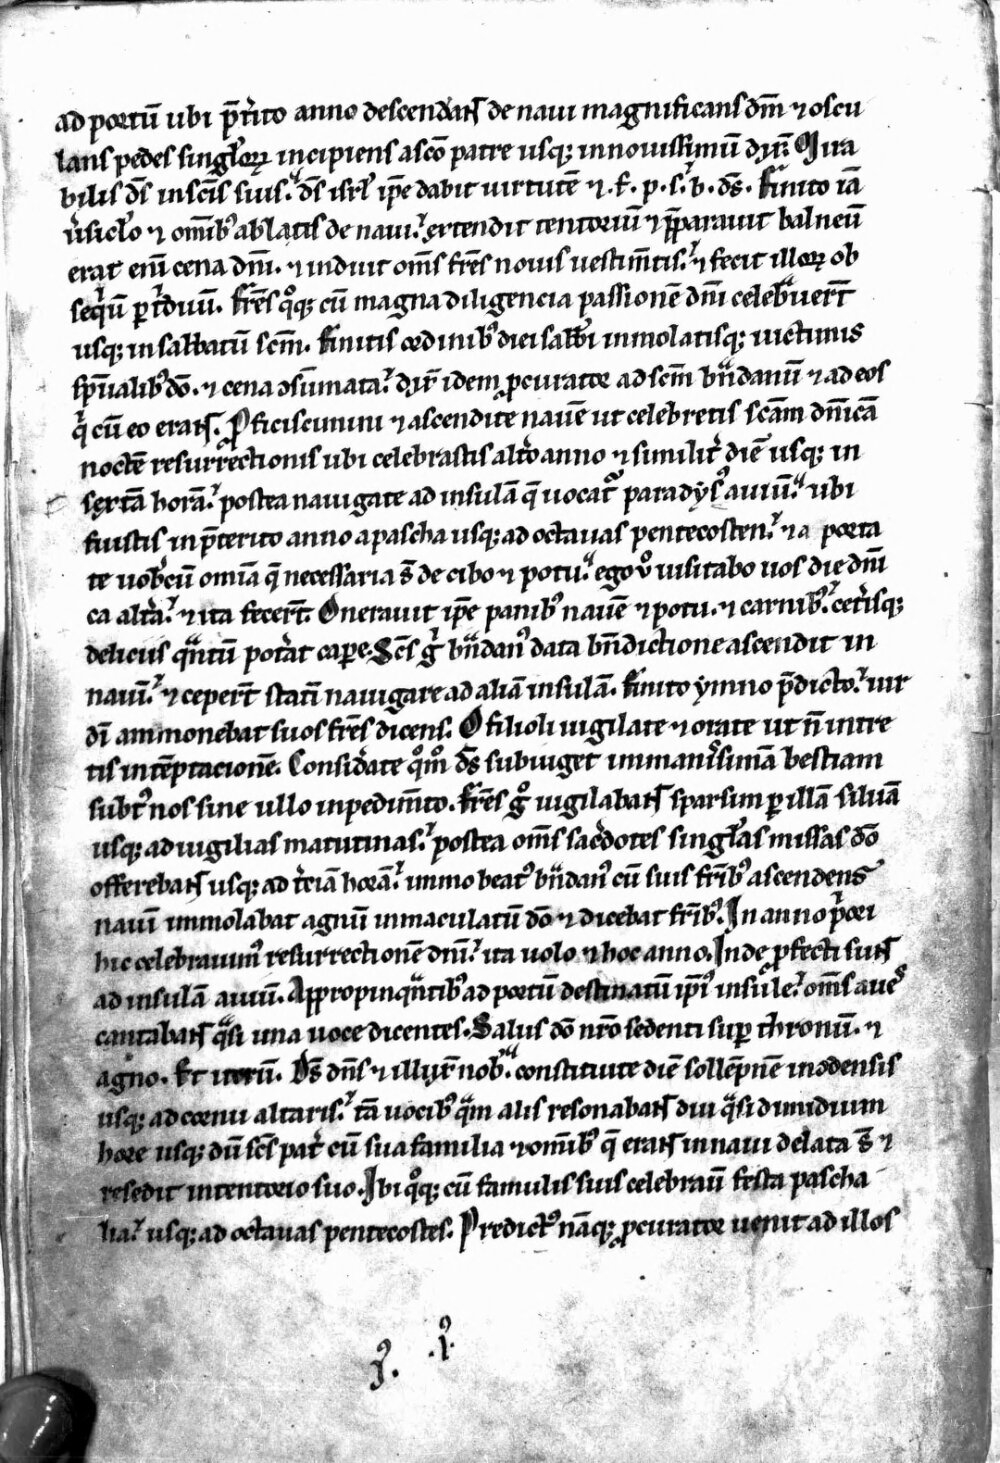 ad portū ubi p̄tito anno descendar̄t de naui magnificans dm̄ ⁊ oscu
lans pedes singlorꝝ incipiens a sc̄o patre usq; in nouissimū dix̄ Mira
bilis ds̄ in scīs suis. ds̄ isrl̄ ip̄e dabit uirtutē ⁊ .f. p. s. b. ds̄. Finito iā
uˀsiclo ⁊ om̄ibꝰ ablatis de naui. extendit tentoriū ⁊ p̄parauit balneū
erat eni cena dn̄i. ⁊ induit om̄s fr̄es nouis uestim̄tis. ⁊ fecit illorꝝ ob
seqͥū ꝑ tͥduū. Fr̄es qͦq; cū magna diligencia passionē dn̄i celebᵃuer̄t
usq; in sabbatū scm̄. Finitis ordinibꝰ diei sabbi inmolatisq; uictimis
sp̄ualibꝰ dō. ⁊ cena ↄsūmata. dix̄ idem ꝓcurator ad scm̄ bᵃndanū ⁊ ad eos
qͥ cū eo erant. Proficiscimini ⁊ ascendite nauē ut celebretis scām dn̄icā
noctē resurrectionis ubi celebrastis altͦo anno ⁊ similitˀ diē usq; in
sextā horā. postea nauigate ad insulā q̄ uocatˀ paradysꝰ auiū. ubi
fuistis in p̄terito anno a pascha usq; ad octauas pentecosten. ⁊ a porta
te uobˀcū omīa q̄ necessaria s̄ de cibo ⁊ potu. ego uͦ uisitabo uos die dn̄i
ca altˀa. ⁊ ita fecer̄t. Onerauit ip̄e panibꝰ nauē ⁊ potu. ⁊ carnibꝰ. cetˀisq;
deliciis qᵃntū potˀat capere. Scs̄ gͥ bᵃndanꝰ data bn̄dictione ascendit in
nauī. ⁊ ceper̄t statī nauigare ad aliā insulā. Finito ymno p̄dicto. uir
dī ammonebat suos fr̄es dicens. O filioli uigilate ⁊ orate ut n̄ intre
tis in tēptacionē. Considˀate qͦmͦ ds̄ subiuget inmanissimā bestiam
subtˀ nos sine ullo inpedim̄to. Fr̄es gͦ uigilabant sparsim ꝑ illā siluā
usq; ad uigilias matutinas. postea om̄s sacˀdotes singlas missas dō
offerebant usq; ad tˀciā horā. immo beatꝰ bᵃndanꝰ cū suis fr̄ibꝰ ascendens
nauī immolabat agnū inmaculatū dō ⁊ dicebat fr̄ibꝰ. In anno pͥori
hic celebrauimꝰ resurrectionē dn̄i. ita uolo ⁊ hoc anno. Inde ꝓfecti sunt
ad insulā auiū. Appropinqᵃntibꝰ ad portū destinatū ip̄iˀ insule. om̄s aues
cantabant qᵃsi una uoce dicentes. Salus dō nr̄o sedenti suꝑ thronū. ⁊
agno. Et iterū. Ds̄ dn̄s ⁊ illuxit nobˀ. constituite diē sollēpnē in odensis
usq; ad cornu altaris. tā uocibꝰ qᵃm alis resonabant diu qᵃsi dimidium
hore usq; dū scs̄ patˀ cū sua familia ⁊ om̄ibꝰ q̄ erant in naui delata s̄ ⁊
resedit in tentorio suo. Ibi qͦq; cū famulis suis celebrauī festa pascha
lia. usq; ad octauas pentecostes. Predictꝰ nāq; ꝓcurator uenit ad illos